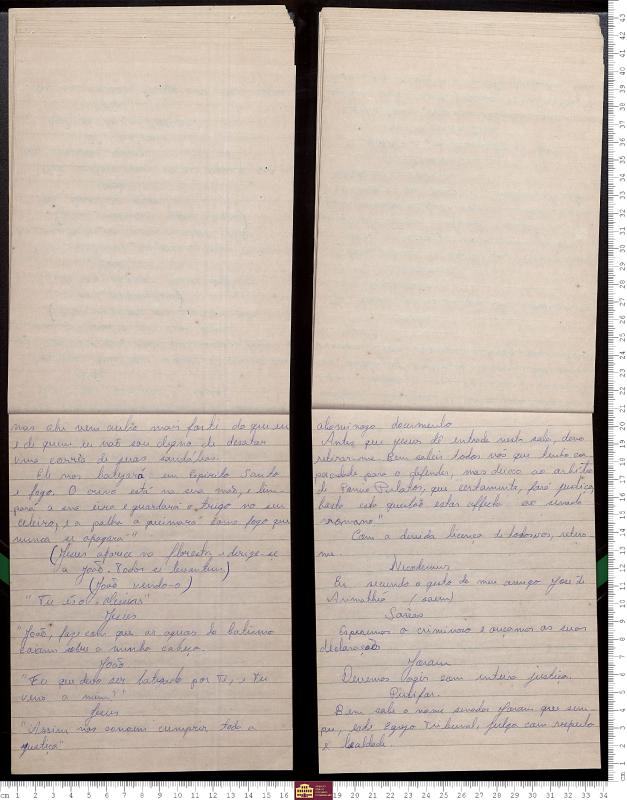 mas ahi vem outro mais forte do que eu
e de quem eu não sou digno de desatar
uma correia de suas sandálias.
Ele vos batizará em Espirito Santo
e fogo. O crivo está na sua mão, e lim-
pará a sua eira e guardará o trigo no seu
celeiro, e a palha a queimará "num fogo que
nunca se apagará""
(Jesus aparece na floresta e dirige-se
a João. Todos se levantam)
(João vendo-o)
"Tu és o
Jesus
"João, faze com que as aguas do batismo
caiam sobre a minha cabeça.
João
"Eu que devo ser batizado por Ti, e Tu
vens a mim?"
Jesus
"Assim nos convem cumprir toda a
justiça"
documento
Antes que Jesus dê entrada nesta sala, devo
retirar-me. Bem sabeis todos vós que tenho ca-
pacidade para o defender, mas deixo ao arbitrio
de Poncio Pilatos, que certamente, fará justiça,
basta esta questão estar affecta ao senado
romano."
Com a devida licença de todos vós, retiro-
me.
Nicodemus
Eu secundo o gesto do meu amigo José de
Arimathéa (saem)
Saréas
Esperemos o criminoso e ouçamos as suas
declarações
Joram
Devemos agir com inteira justiça.
Putifar.
Bem sabe o nobre senador Joram que sem-
pre, este Egregio Tribunal, julga com respeito
e lealdade